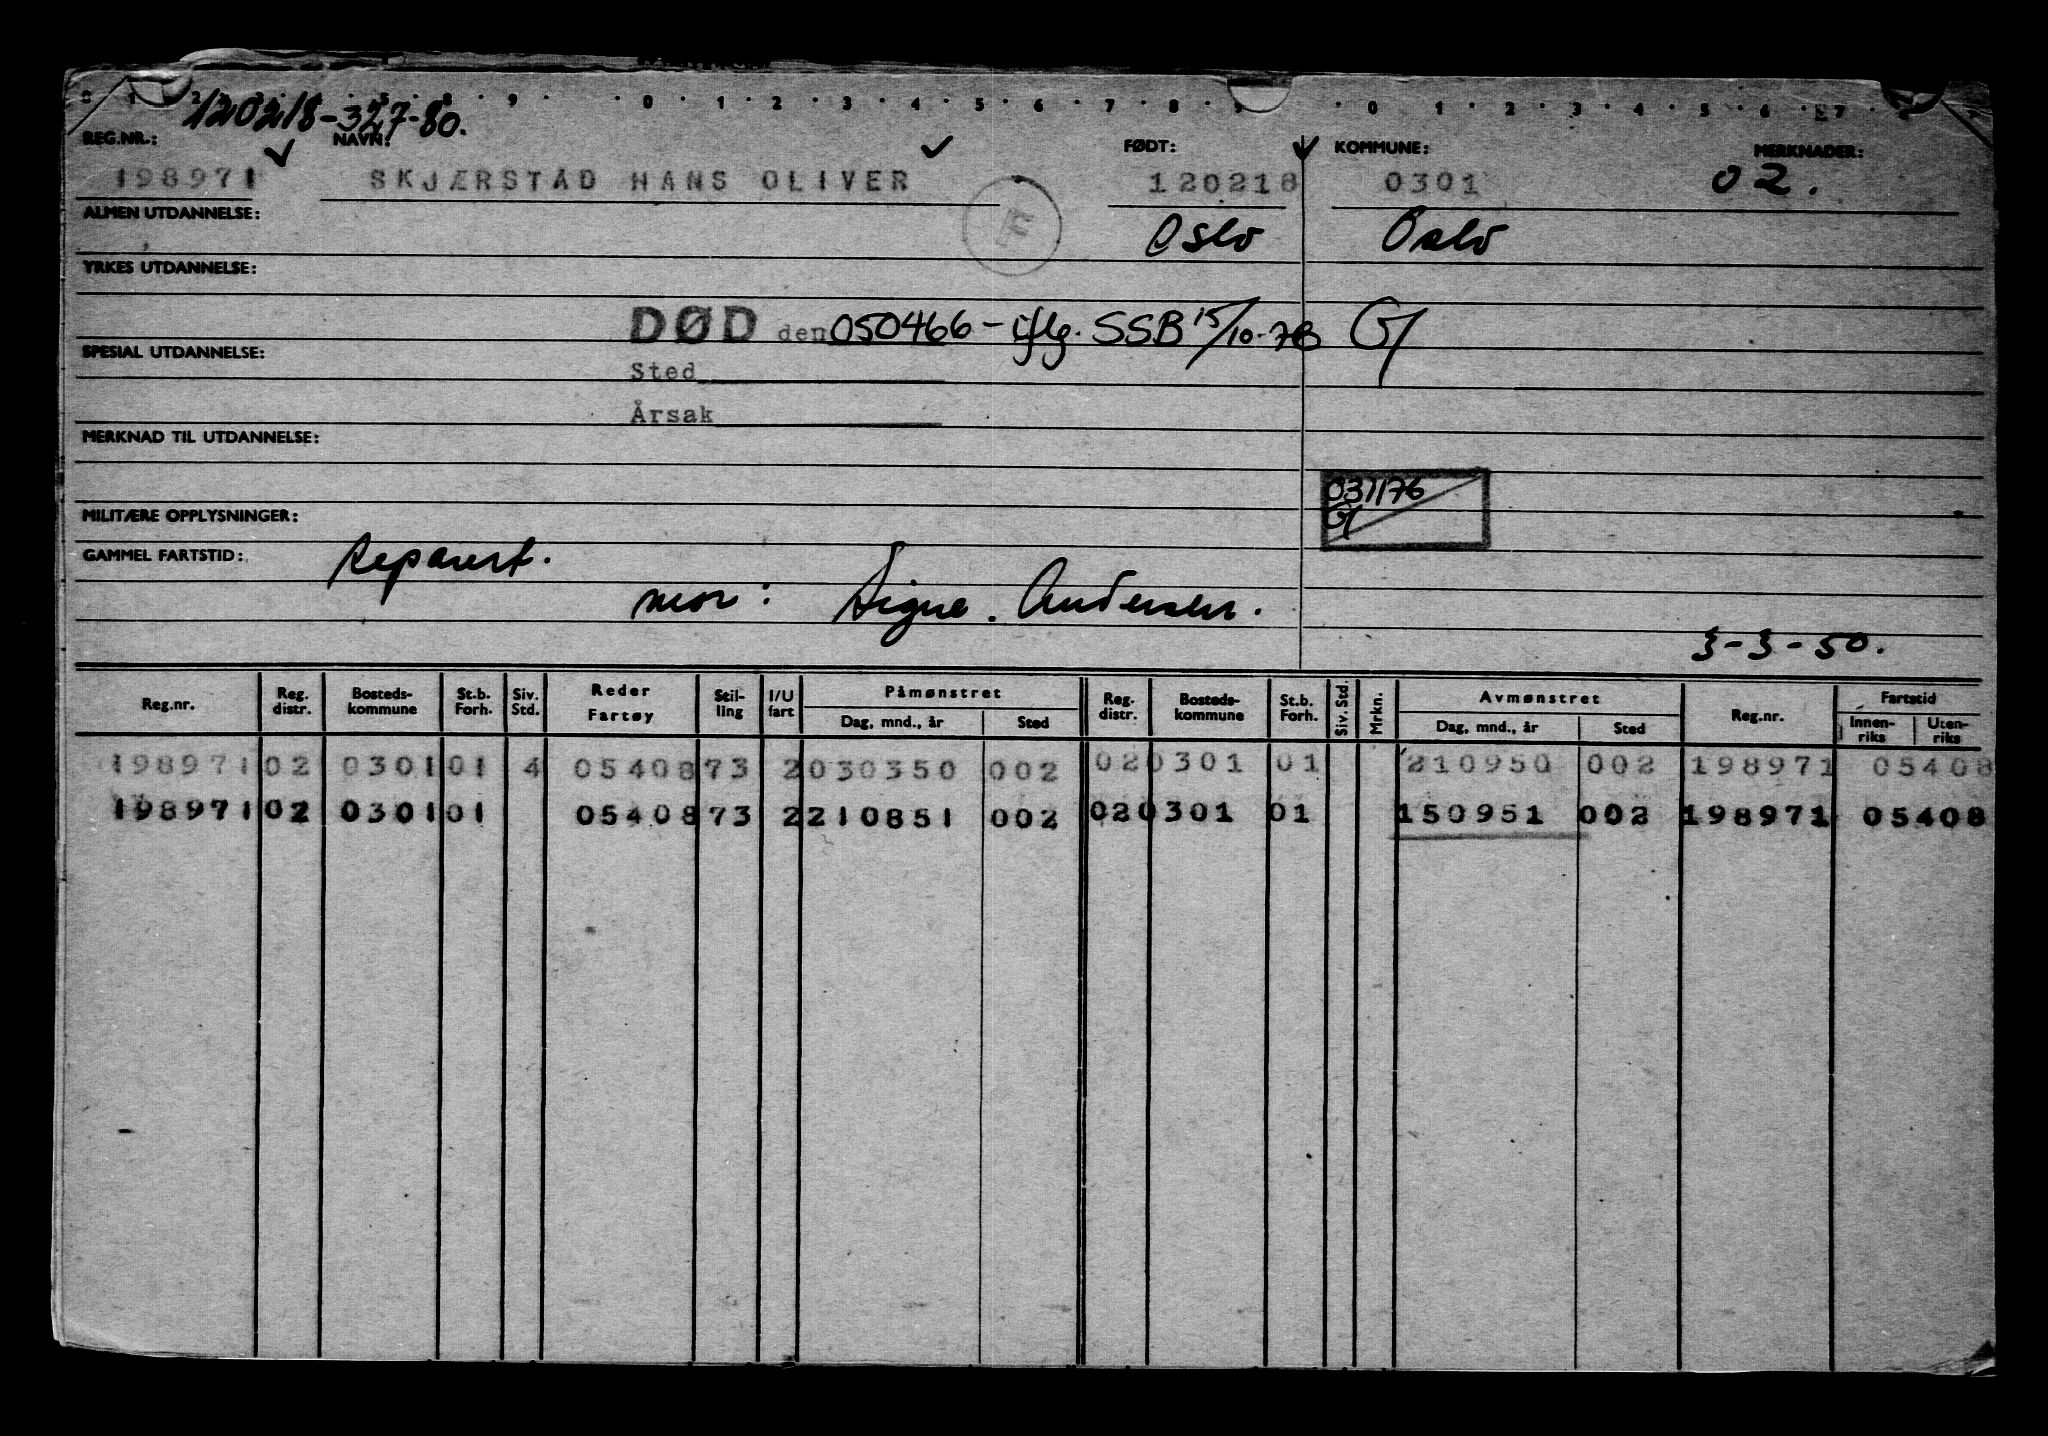 120218-327-80.
REG.NR.: NAVN: FØDT: KOMMUNE: MERKNADER:
198971 SKJÆRSTAD HANS OLIVER 120218 0301 02.
F
ALMEN UTDANNELSE: Oslo Oslo
YRKES UTDANNELSE:
DØD den 050466 - iflg. SSB 15/10-78
SPESIAL UTDANNELSE:
Sted
Årsak
MERKNAD TIL UTDANNELSE:
031176
MILITÆRE OPPLYSNINGER:
GAMMEL FARTSTID: Reparert.
mor: Signe. Andersen.
3-3-50.
Reg.nr. Reg. distr. Bosteds-kommune St.b. Forh. Siv. Std. Reder Fartøy Stil-ling I/U fart Påmønstret Dag, mnd., år Sted Reg. distr. Bosteds-kommune St.b. Forh. Siv. Std. Mrkn. Avmønstret Dag, mnd., år Sted Reg.nr. Fartstid Innen-riks Uten-riks
198971 02 0301 01 4 05408 73 2 030350 002 02 0301 01 210950 002 198971 05408
198971 02 0301 01 05408 73 2 210851 002 02 0301 01 150951 002 198971 05408